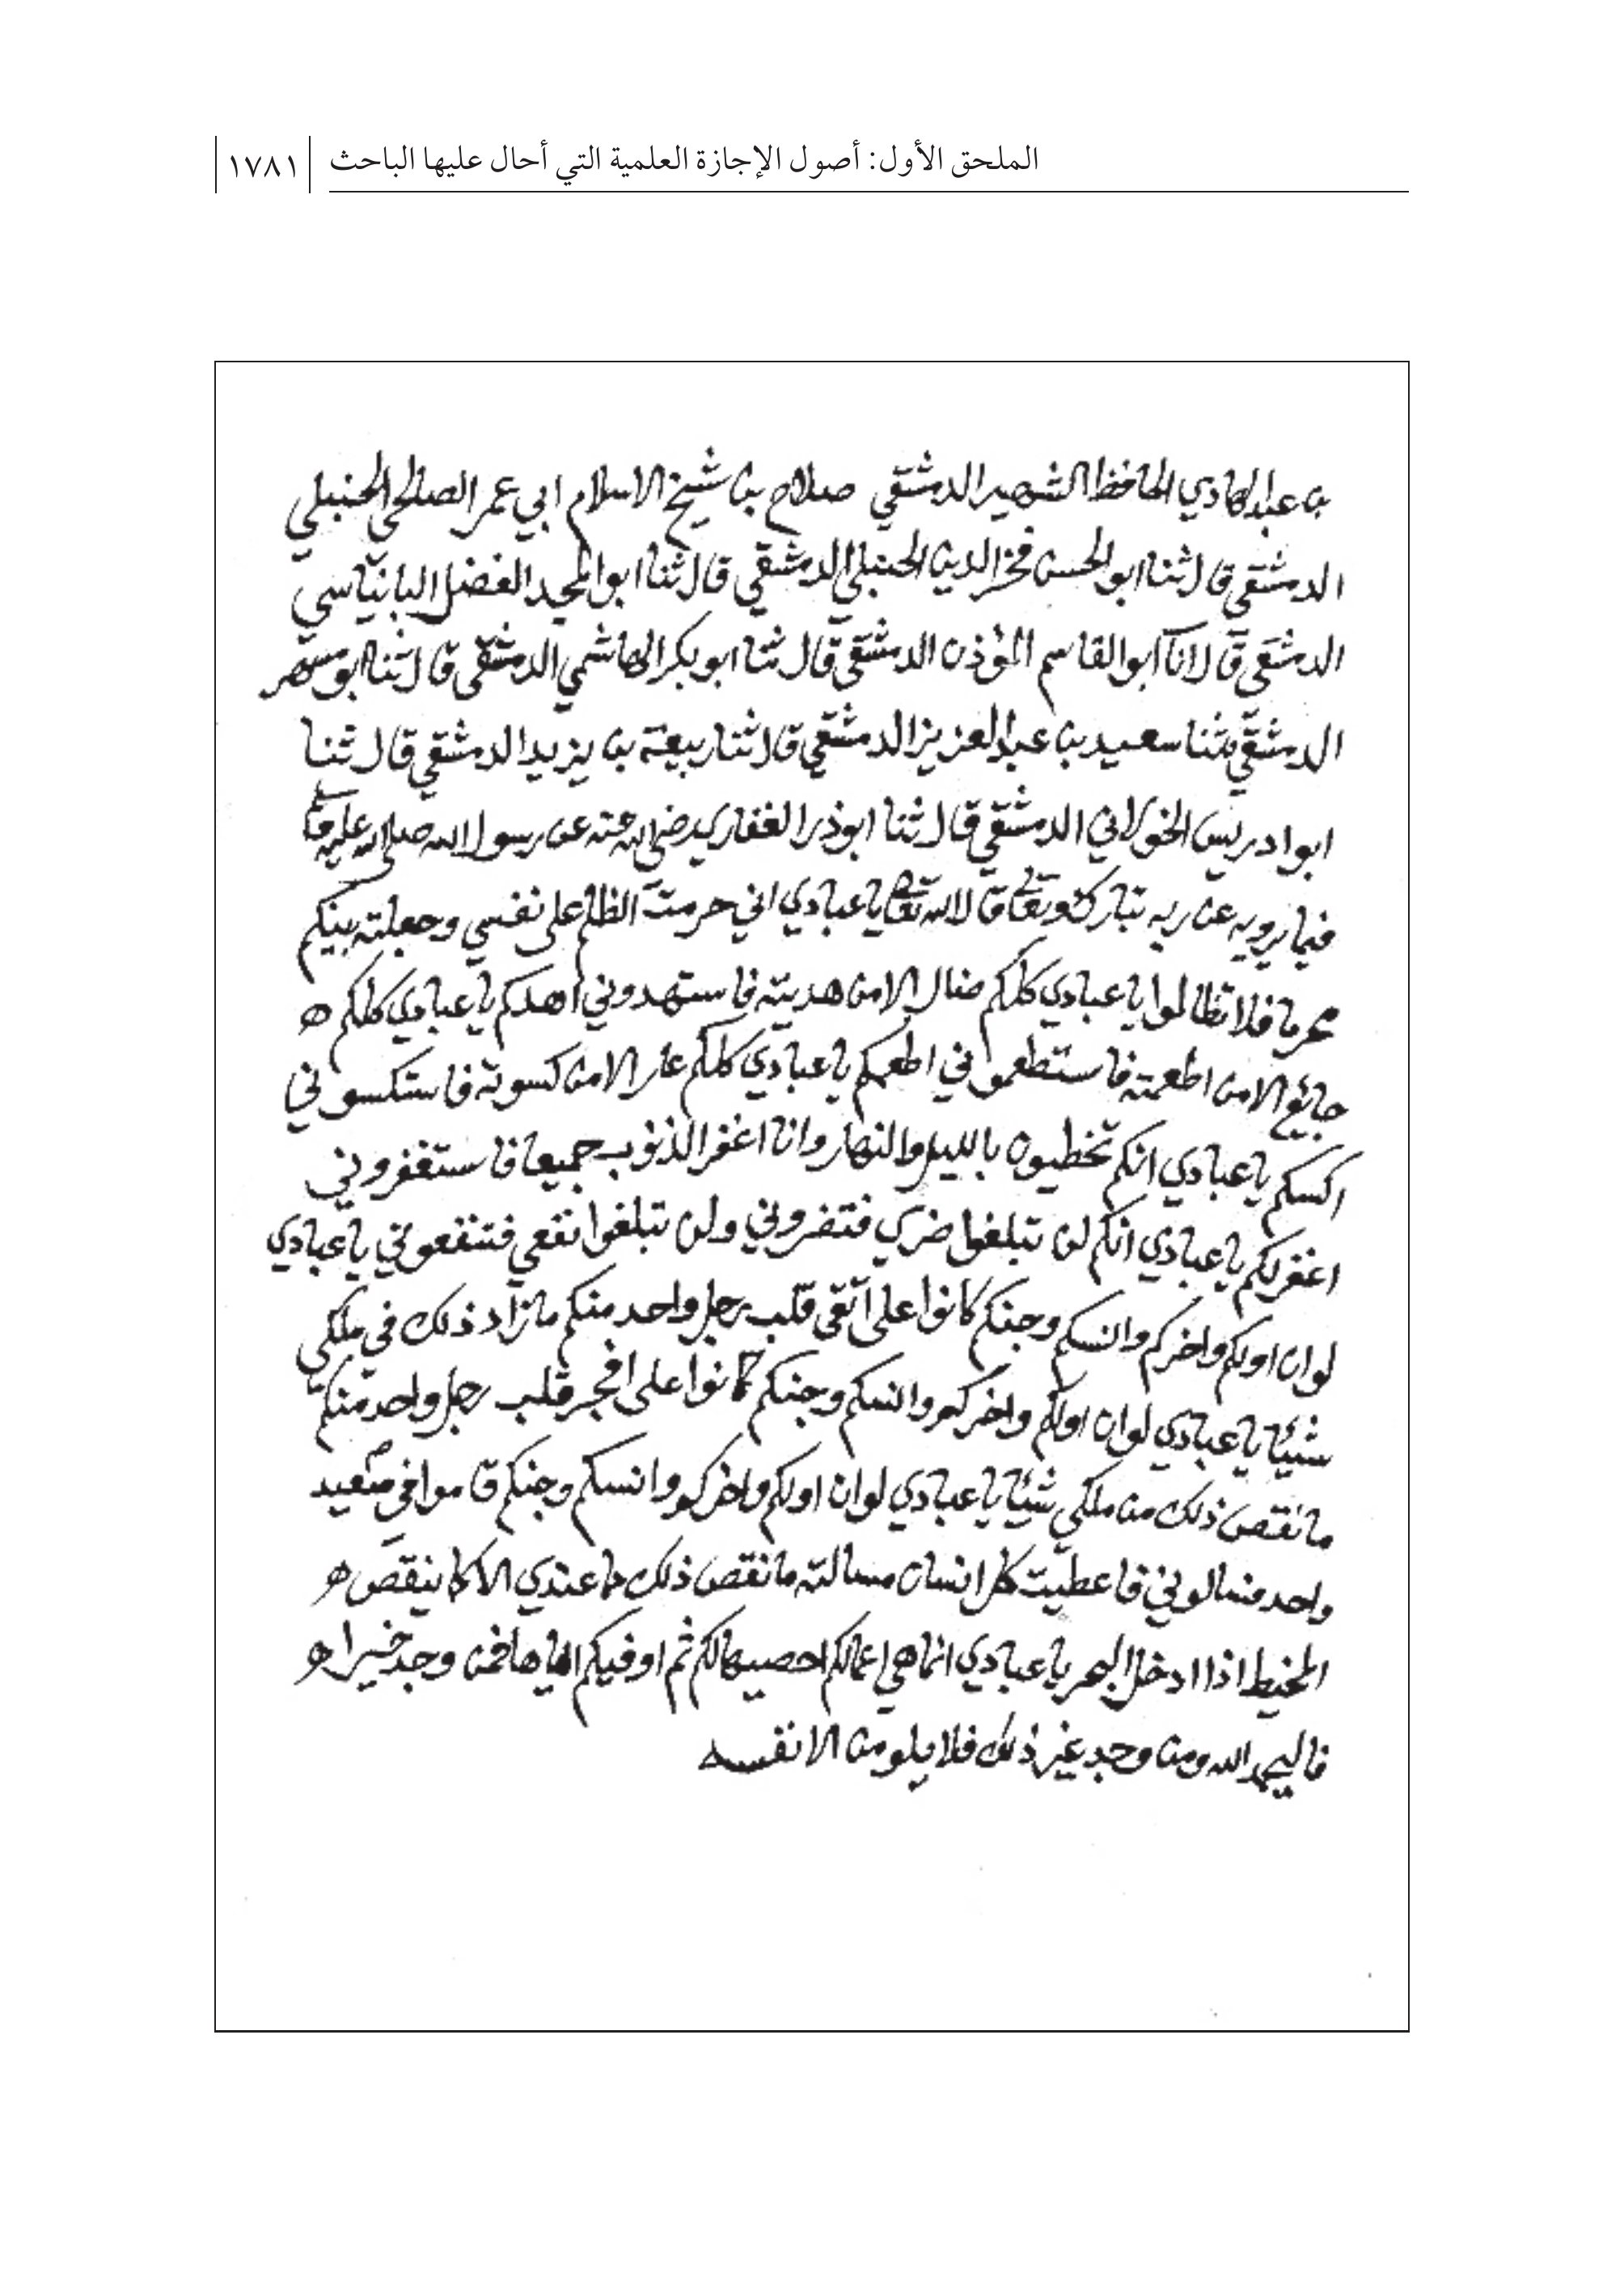 الملحق الأول: أصول الإجازة العلمية التي أحال عليها الباحث ١٧٨١
بن عبد الهادي الحافظ الشهير الدمشقي صلاح بن شيخ الاسلام ابي عمر الصالحي الحنبلي
الدمشقي قال ثنا ابو الحسن فخر الدين الحنبلي الدمشقي قال ثنا ابو المجد الفضل البانياسي
الدمشقي قال انا ابو القاسم المؤذن الدمشقي قال ثنا ابو بكر الهاشمي الدمشقي قال ثنا ابو مسهر
الدمشقي ثنا سعيد بن عبد العزيز الدمشقي قال ثنا ربيعة بن يزيد الدمشقي قال ثنا
ابو ادريس الخولاني الدمشقي قال ثنا ابو ذر الغفاري رضي الله عنه عن رسول الله صلى الله عليه
فيما يرويه عن ربه تبارك وتعالى قال الله تعالى يا عبادي اني حرمت الظلم على نفسي وجعلته بينكم
محرما فلا تظالموا يا عبادي كلكم ضال الا من هديته فاستهدوني اهدكم يا عبادي كلكم ه
جائع الا من اطعمته فاستطعموني اطعمكم يا عبادي كلكم عار الا من كسوته فاستكسوني
اكسكم يا عبادي انكم تخطيون بالليل والنهار وانا اغفر الذنوب جميعا فاستغفروني
اغفر لكم يا عبادي انكم لن تبلغوا ضري فتضروني ولن تبلغوا نفعي فتنفعوني يا عبادي
لو ان اولكم واخركم وانسكم وجنكم كانوا على اتقى قلب رجل واحد منكم ما زاد ذلك في ملكي
شيئا يا عبادي لو ان اولكم واخركم وانسكم وجنكم كانوا على افجر قلب رجل واحد منكم
ما نقص ذلك من ملكي شيئا يا عبادي لو ان اولكم واخركم وانسكم وجنكم قاموا في صعيد
واحد فسالوني فاعطيت كل انسان مسالته ما نقص ذلك مما عندي الا كما ينقص ه
المخيط اذا ادخل البحر يا عبادي انما هي اعمالكم احصيها لكم ثم اوفيكم اياها فمن وجد خيرا ه
فاليحمد الله ومن وجد غير ذلك فلا يلومن الا نفسه